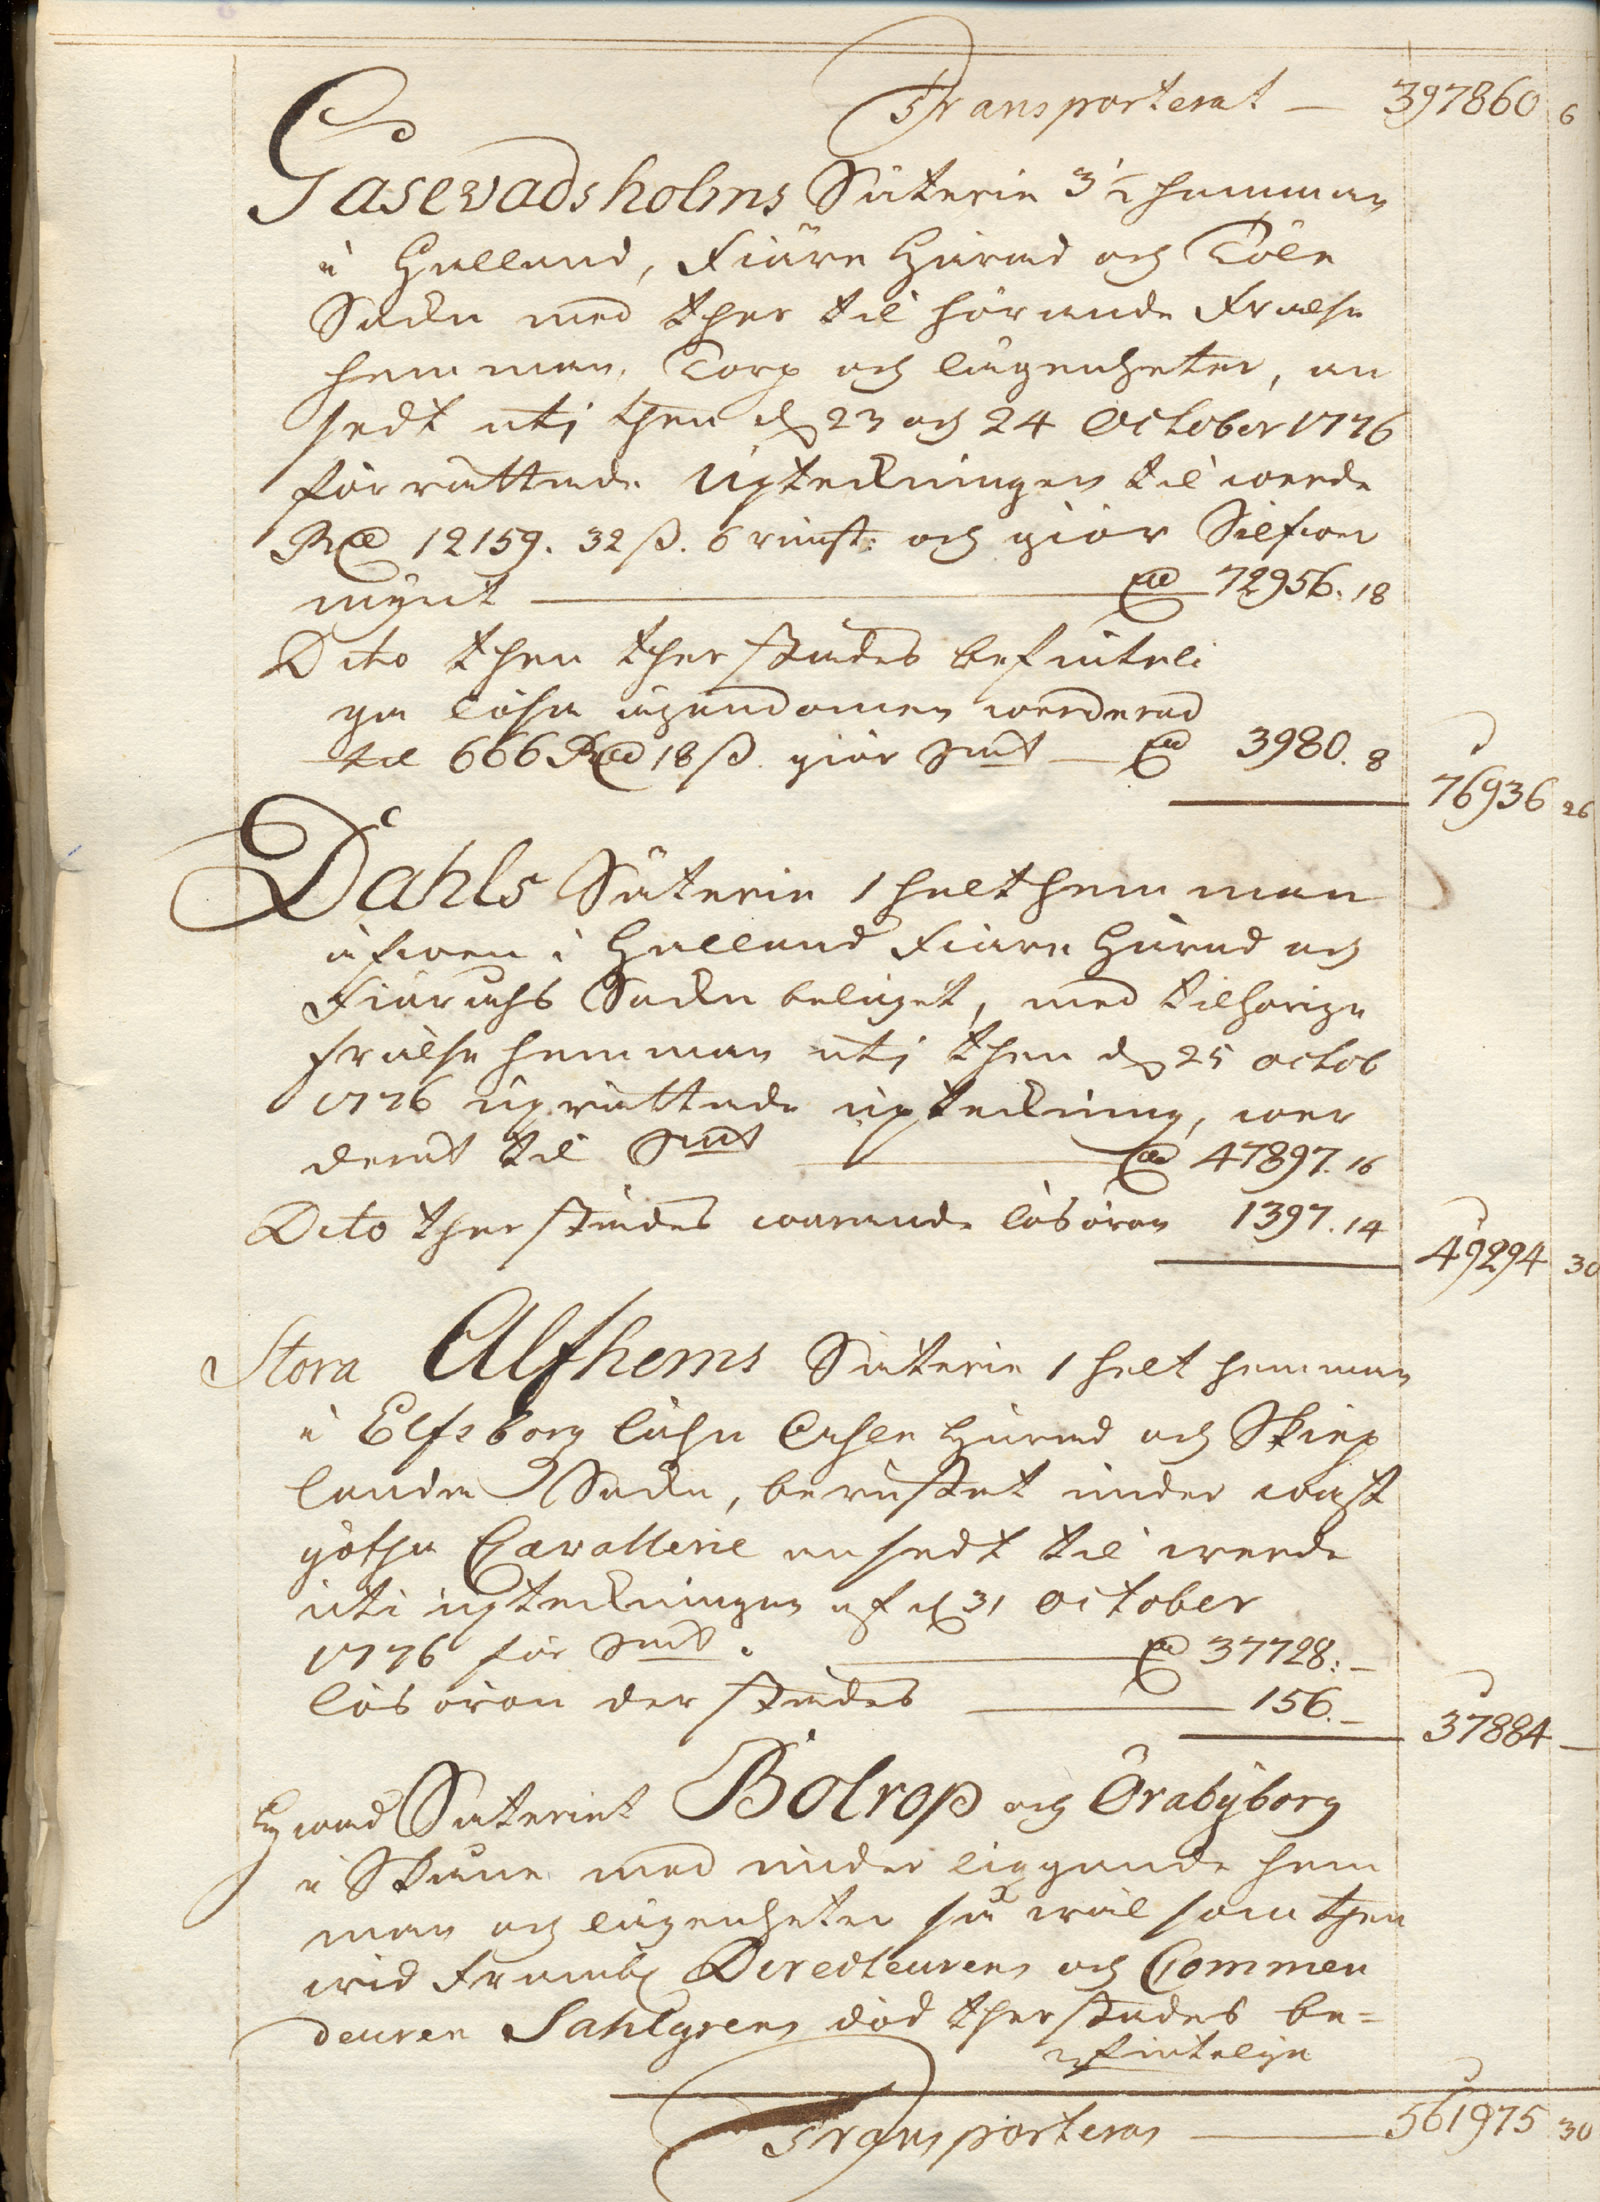 Transporterat — 397860 6
Gåsevadsholms Säterie 3 1/2 hemman
i Halland, Fiäre Härad och Tölö
Sockn med ther til hörande Frälse
hemman, Torp och lägenheter, an
sedt uti then d 23 och 24 October 1776
förrättade Upteckningen til werde
Rd 12159. 32 ß. 6 runst: och giör Silfwer
mynt — 72956. 18
Dito then therstädes befinteli
ga lösa ägendomen werderad
til 666 Rd 18 ß. giör Smt — 3980. 8
76936 26
Dahls Säterie 1 helt hemman
äfwen i Halland Fiäre Härad och
Fiärås Sockn beläget, med tilhörige
frälse hemman uti then d 25 octob
1776 uprättade upteckning, wer
derat til Smt — 47897. 16
Dito therstädes warande lösören 1397. 14
49294 30
Stora Alfhems Säterie 1 helt hemman
i Elfsborg lähn Ahle Härad och Skiep
landa Sockn, berustat under wäst
götha Cavallerie ansedt til werde
uti upteckningen af d 31 October
1776 för Smt. — 37728: —
lösören derstädes — 156. —
37884 —
Säteriet Bolrop och Örabÿborg
i Skåne med under liggande hem
man och lägenheter så wäl som then
wid framl Directeurens och Commen
deuren Sahlgrens död therstädes be=
fintelige
Transporteras — 561975 30